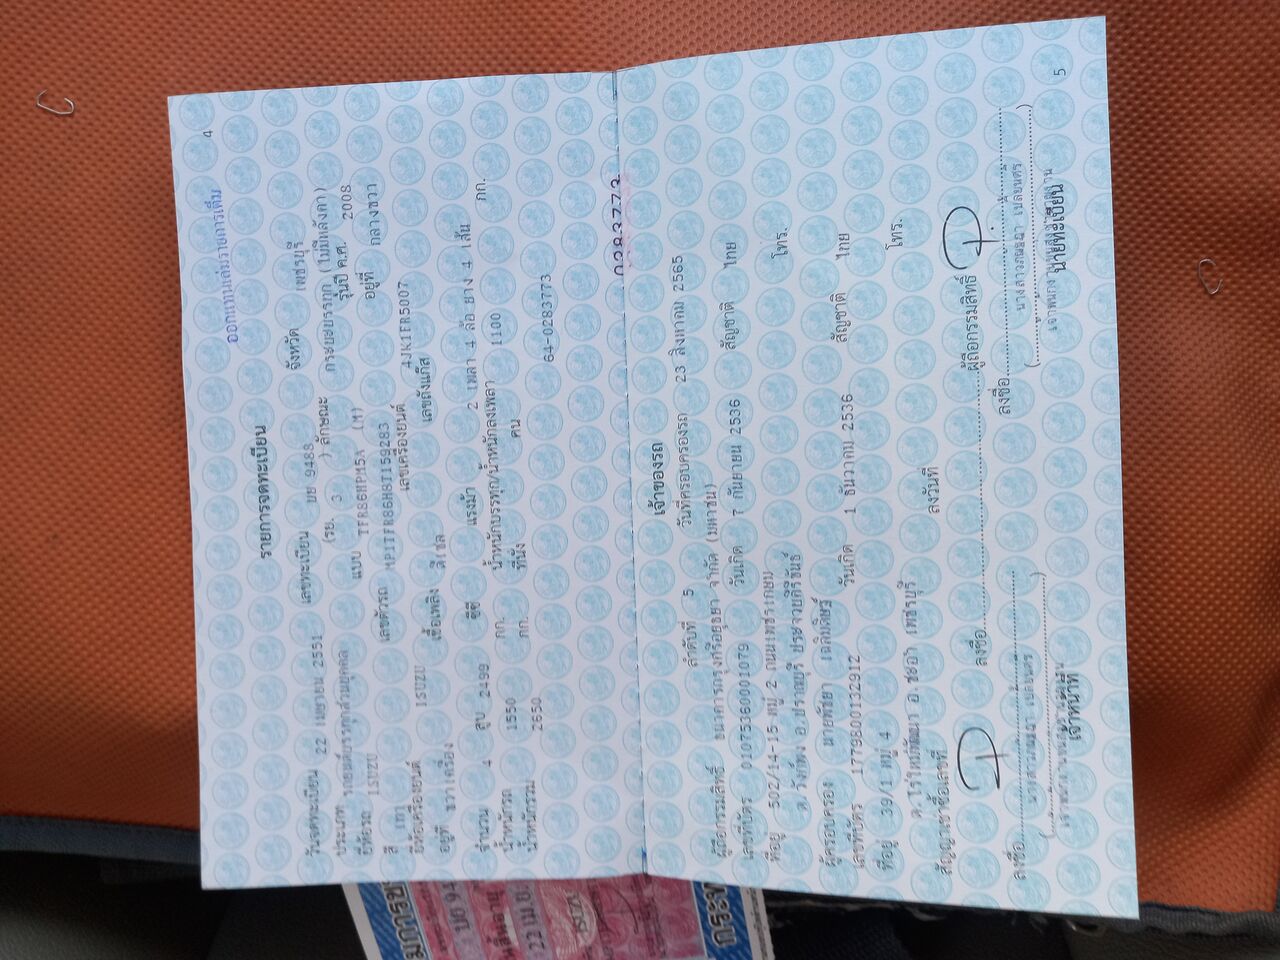 4
ออกแทนเล่มรายการเต็ม
รายการจดทะเบียน
วันจดทะเบียน 22 เมษายน 2551 เลขทะเบียน บย 9488 จังหวัด เพชรบุรี
ประเภท รถยนต์บรรทุกส่วนบุคคล (รย. 3 ) ลักษณะ กระบะบรรทุก (ไม่มีหลังคา)
ยี่ห้อรถ ISUZU แบบ TFR86HPM5A (M) รุ่นปี ค.ศ. 2008
สี เทา เลขตัวรถ MP1TFR86H8T159283 อยู่ที่ กลางขวา
ยี่ห้อเครื่องยนต์ ISUZU เลขเครื่องยนต์ 4JK1FR5007
อยู่ที่ ขวาเครื่อง เชื้อเพลิง ดีเซล เลขถังแก๊ส
จำนวน 4 สูบ 2499 ซีซี แรงม้า 2 เพลา 4 ล้อ ยาง 4 เส้น
น้ำหนักรถ 1550 กก. น้ำหนักบรรทุก/น้ำหนักลงเพลา 1100 กก.
น้ำหนักรวม 2650 กก. ที่นั่ง คน
64-0283773
0283773
เจ้าของรถ
ลำดับที่ 5 วันที่ครอบครองรถ 23 สิงหาคม 2565
ผู้ถือกรรมสิทธิ์ ธนาคารกรุงศรีอยุธยา จำกัด (มหาชน)
เลขที่บัตร 0107536001079 วันเกิด 7 กันยายน 2536 สัญชาติ ไทย
ที่อยู่ 502/14-15 หมู่ 2 ถนนเพชรเกษม
ต.วังก์พง อ.ปราณบุรี ประจวบคีรีขันธ์ โทร.
ผู้ครอบครอง นายพีชยา เฉลิมดิษฐ์
เลขที่บัตร 1779800132912 วันเกิด 1 ธันวาคม 2536 สัญชาติ ไทย
ที่อยู่ 39/1 หมู่ 4
ต.ไร่ใหม่พัฒนา อ.ชะอำ เพชรบุรี โทร.
สัญญาเช่าซื้อเลขที่ ลงวันที่
ลงชื่อ ผู้ถือกรรมสิทธิ์
ลงชื่อ ลงชื่อ
เจ้าหน้าที่ นายทะเบียน
5
22 เม.ย.
ISUZU